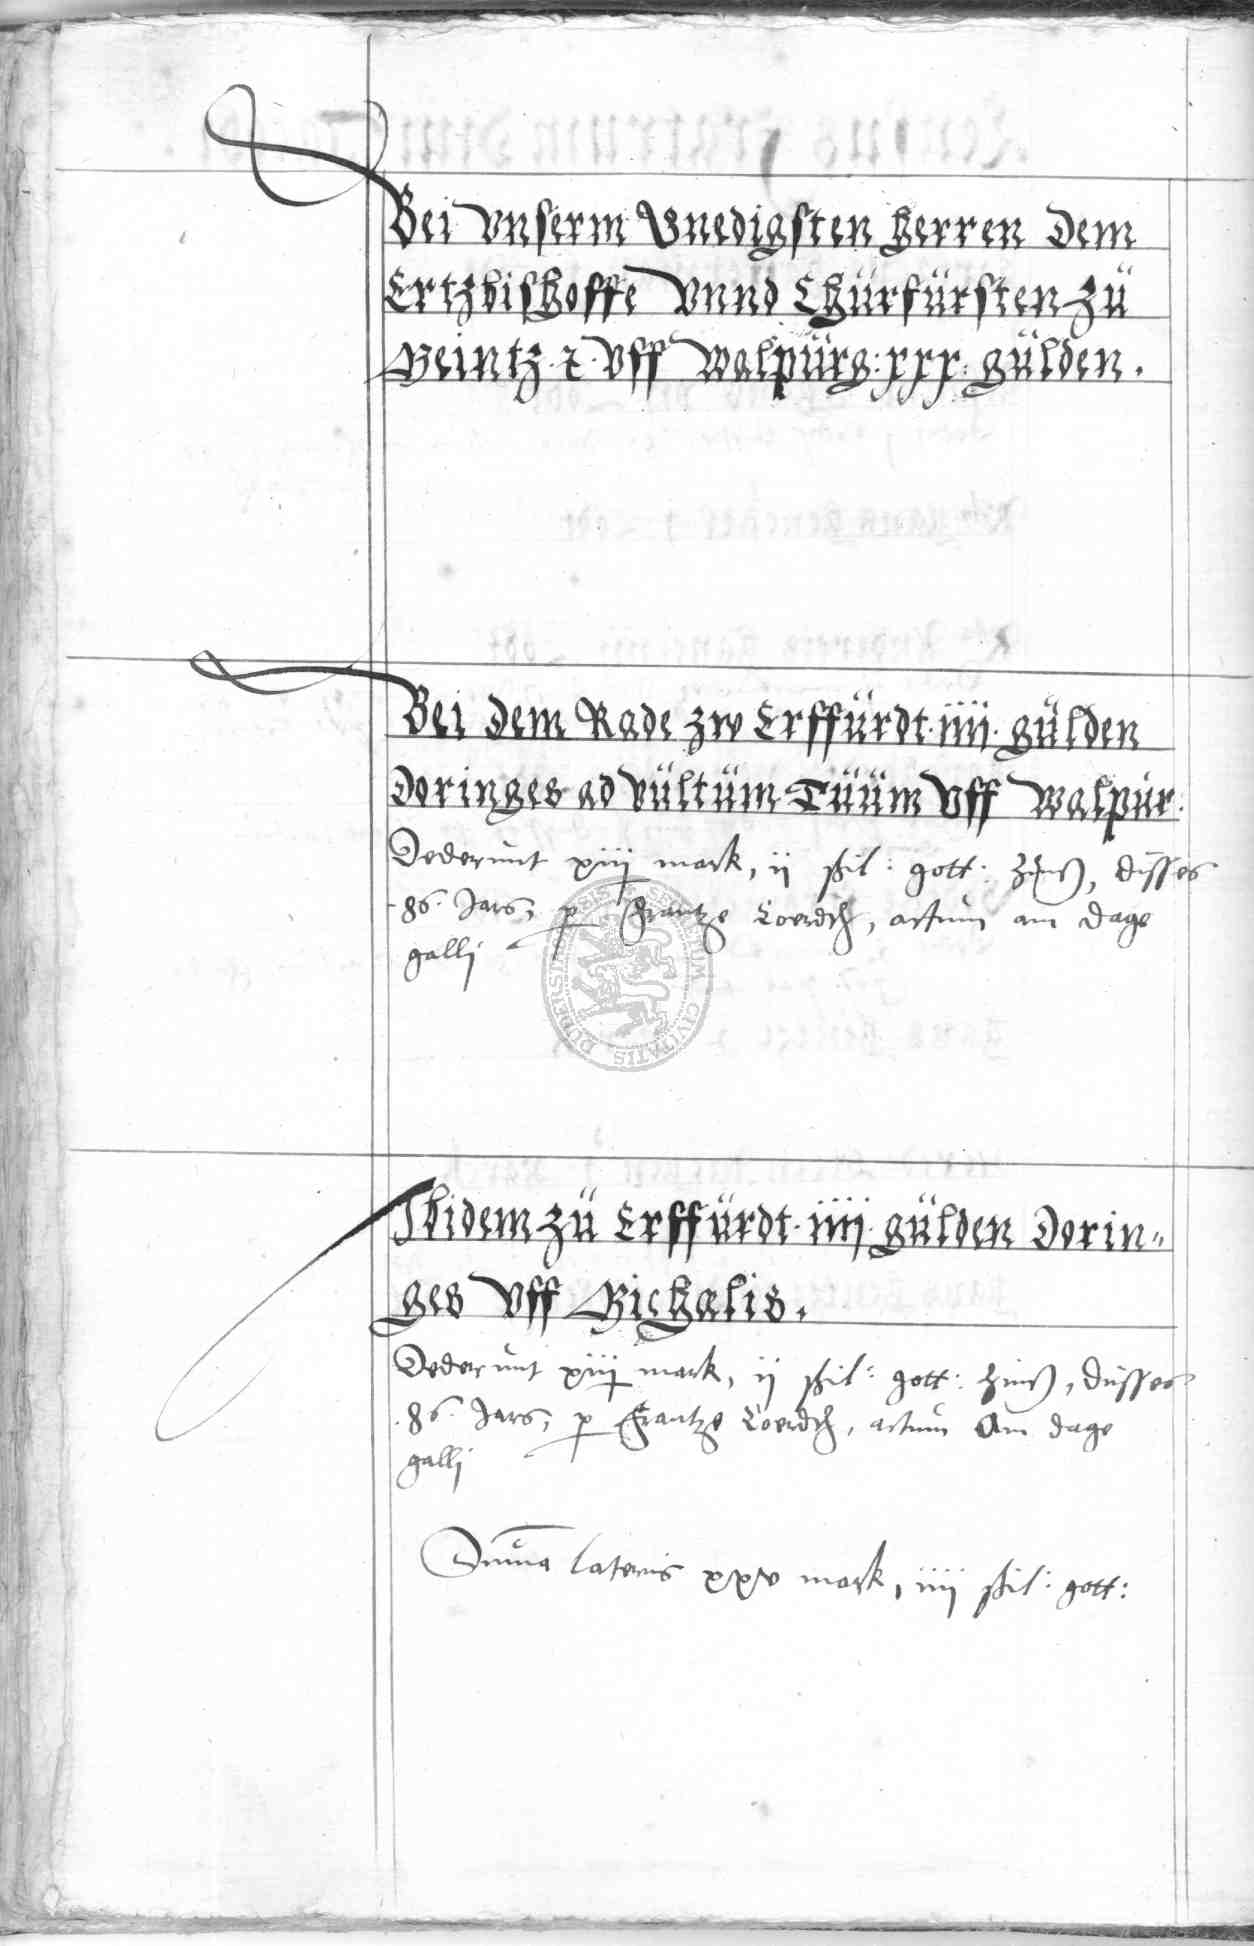 Bei Vnserm Gnedigsten herren Dem
Ertzbishoffe Vnnd Chürfürsten zü
Meintz. z. Vff Walpürg: xxx: gülden.
Bei Dem Rade zw Erffürdt. iiij. gülden
Doringes ad vültüm Tüüm Vff Walpür:
Dederunt xiij mark, ij ßil: gott: Zinß, disses
86. Jars, p Frantze Coerdth, actum am dage
galli
SIGILLUM CIVITATIS DUDERSTADENSIS
Ibidem zü Erffürdt. iiij. gülden Dorin„
ges Vff Michalis.
Dederunt xiij mark, ij ßil: gott: Zinß, disses
.86. Jars, p Frantze Coerdth, actum Am dage
galli
Summa lateris xxv mark, iiij ßil: gott: